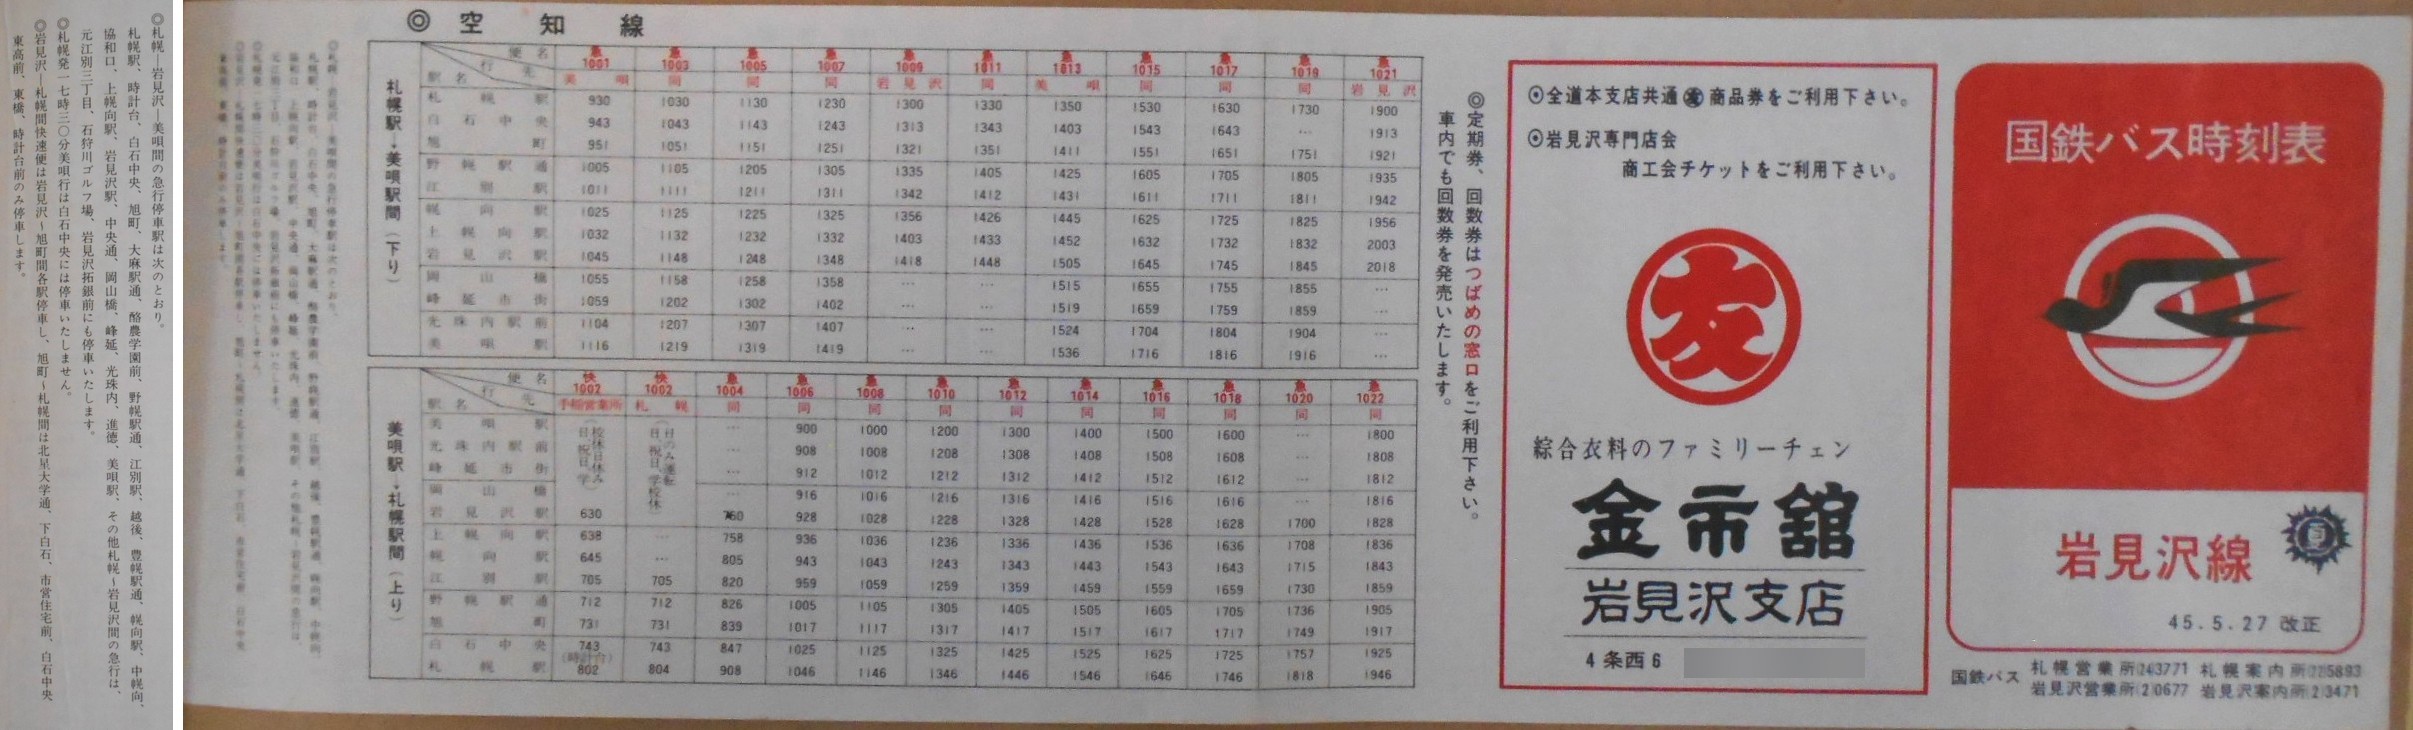 ◎札幌―岩見沢―美唄間の急行停車駅は次のとおり。
札幌駅、時計台、白石中央、旭町、大麻駅通、酪農学園前、野幌駅通、江別駅、越後、豊幌駅通、幌向駅、中幌向、
協和口、上幌向駅、岩見沢駅、中央通、岡山橋、峰延、光珠内、進徳、美唄駅、その他札幌~岩見沢間の急行は、
元江別三丁目、石狩川ゴルフ場、岩見沢拓銀前にも停車いたします。
◎札幌発一七時三〇分美唄行は白石中央には停車いたしません。
◎岩見沢―札幌間快速便は岩見沢~旭町間各駅停車し、旭町~札幌間は北星大学通、下白石、市営住宅前、白石中央
東高前、東橋、時計台前のみ停車します。
◎空知線
札幌駅→美唄駅間(下り)
便名 急1001 急1003 急1005 急1007 急1009 急1011 急1013 急1015 急1017 急1019 急1021
駅名 行先 美唄 同 同 同 岩見沢 同 美唄 同 同 同 岩見沢
札幌駅 930 1030 1130 1230 1300 1330 1350 1530 1630 1730 1900
白石中央 943 1043 1143 1243 1313 1343 1403 1543 1643 … 1913
旭町 951 1051 1151 1251 1321 1351 1411 1551 1651 1751 1921
野幌駅通 1005 1105 1205 1305 1335 1405 1425 1605 1705 1805 1935
江別駅 1011 1111 1211 1311 1342 1412 1431 1611 1711 1811 1942
幌向駅 1025 1125 1225 1325 1356 1426 1445 1625 1725 1825 1956
上幌向駅 1032 1132 1232 1332 1403 1433 1452 1632 1732 1832 2003
岩見沢駅 1045 1148 1248 1348 1418 1448 1505 1645 1745 1845 2018
岡山橋 1055 1158 1258 1358 … … 1515 1655 1755 1855 …
峰延市街 1059 1202 1302 1402 … … 1519 1659 1759 1859 …
光珠内駅前 1104 1207 1307 1407 … … 1524 1704 1804 1904 …
美唄駅 1116 1219 1319 1419 … … 1536 1716 1816 1916 …
美唄駅→札幌駅間(上り)
便名 快1002 快1002 急1004 急1006 急1008 急1010 急1012 急1014 急1016 急1018 急1020 急1022
駅名 行先 手稲営業所 札幌 同 同 同 同 同 同 同 同 同 同
(日、祝日、学校休日休み) (日、祝日、学校休日のみ運転)
美唄駅 … 900 1000 1200 1300 1400 1500 1600 … 1800
光珠内駅前 … 908 1008 1208 1308 1408 1508 1608 … 1808
峰延市街 … 912 1012 1212 1312 1412 1512 1612 … 1812
岡山橋 … 916 1016 1216 1316 1416 1516 1616 … 1816
岩見沢駅 630 928 1028 1228 1328 1428 1528 1628 1700 1828
上幌向駅 638 … 758 936 1036 1236 1336 1436 1536 1636 1708 1836
幌向駅 645 805 943 1043 1243 1343 1443 1543 1643 1715 1843
江別駅 705 705 820 959 1059 1259 1359 1459 1559 1659 1730 1859
野幌駅通 712 712 826 1005 1105 1305 1405 1505 1605 1705 1736 1905
旭町 731 731 839 1017 1117 1317 1417 1517 1617 1717 1749 1917
白石中央 743 743 847 1025 1125 1325 1425 1525 1625 1725 1757 1925
(時計台)
札幌駅 802 804 908 1046 1146 1346 1446 1546 1646 1746 1818 1946
◎定期券、回数券はつばめの窓口をご利用下さい。
車内でも回数券を発売いたします。
⊙全道本支店共通 友 商品券をご利用下さい。
⊙岩見沢専門店会
商工会チケットをご利用下さい。
友
綜合衣料のファミリーチェン
金市舘
岩見沢支店
4条西6
国鉄バス時刻表
岩見沢線
夏
45.5.27 改正
国鉄バス
札幌営業所(24)3771 札幌案内所
岩見沢営業所(2)0677 岩見沢案内所(2)3471